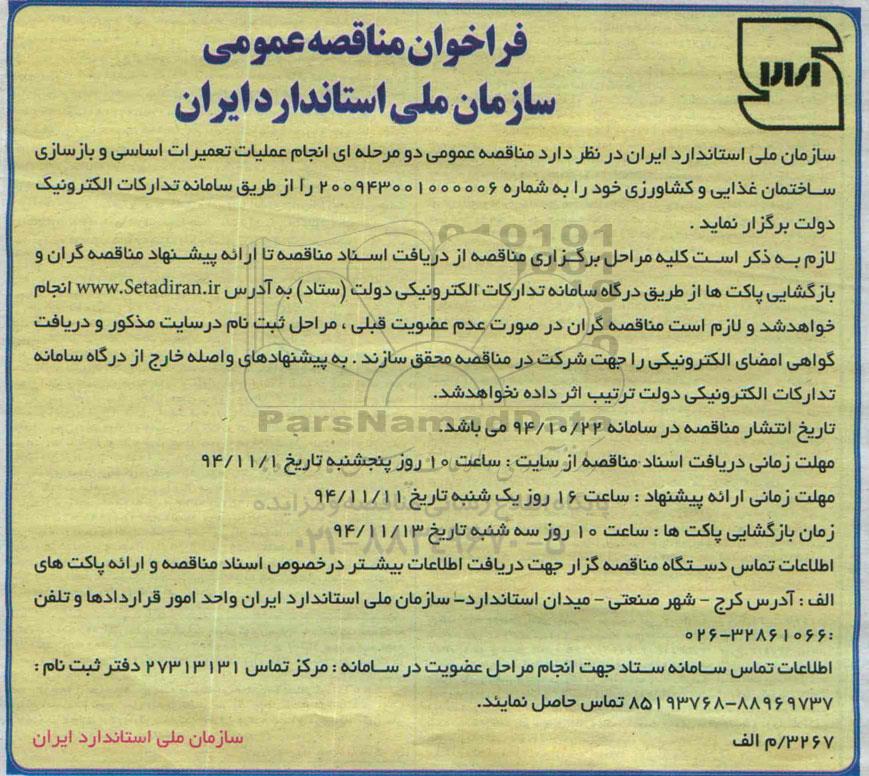 فراخوان مناقصه عمومی
سازمان ملی استاندارد ایران
سازمان ملی استاندارد ایران در نظر دارد مناقصه عمومی دو مرحله ای انجام عملیات تعمیرات اساسی و بازسازی
ساختمان غذایی و کشاورزی خود را به شماره ۲۰۰۹۴۳۰۰۱۰۰۰۰۰۶ را از طریق سامانه تدارکات الکترونیک
دولت برگزار نماید .
لازم به ذکر است کلیه مراحل برگزاری مناقصه از دریافت اسناد مناقصه تا ارائه پیشنهاد مناقصه گران و
بازگشایی پاکت ها از طریق درگاه سامانه تدارکات الکترونیکی دولت (ستاد) به آدرس www.Setadiran.ir انجام
خواهدشد و لازم است مناقصه گران در صورت عدم عضویت قبلی ، مراحل ثبت نام درسایت مذکور و دریافت
گواهی امضای الکترونیکی را جهت شرکت در مناقصه محقق سازند . به پیشنهادهای واصله خارج از درگاه سامانه
تدارکات الکترونیکی دولت ترتیب اثر داده نخواهدشد.
ParsNamadData
تاریخ انتشار مناقصه در سامانه ۹۴/۱۰/۲۲ می باشد.
مهلت زمانی دریافت اسناد مناقصه از سایت : ساعت ۱۰ روز پنجشنبه تاریخ ۹۴/۱۱/۱
مهلت زمانی ارائه پیشنهاد : ساعت ۱۶ روز یک شنبه تاریخ ۹۴/۱۱/۱۱
زمان بازگشایی پاکت ها : ساعت ۱۰ روز سه شنبه تاریخ ۹۴/۱۱/۱۳
اطلاعات تماس دستگاه مناقصه گزار جهت دریافت اطلاعات بیشتر درخصوص اسناد مناقصه و ارائه پاکت های
الف : آدرس کرج - شهر صنعتی - میدان استاندارد- سازمان ملی استاندارد ایران واحد امور قراردادها و تلفن
:۰۲۶-۳۲۸۶۱۰۶۶
اطلاعات تماس سامانه ستاد جهت انجام مراحل عضویت در سامانه : مرکز تماس ۲۷۳۱۳۱۳۱ دفتر ثبت نام :
۸۵۱۹۳۷۶۸-۸۸۹۶۹۷۳۷ تماس حاصل نمایند.
۳۲۶۷/م الف
سازمان ملی استاندارد ایران